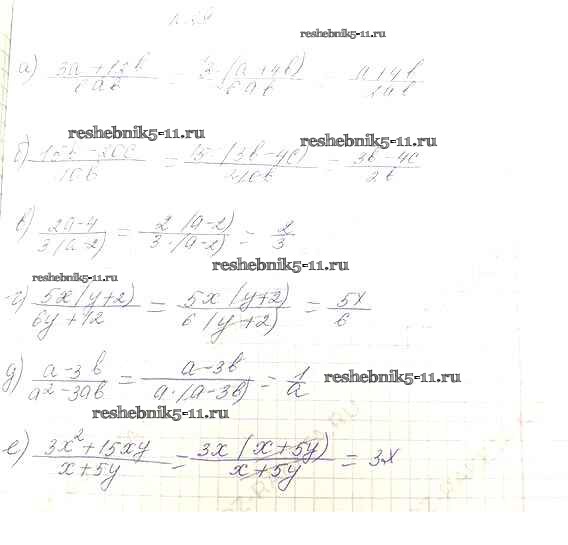 reshebnik5-11.ru
а) (3a + 12b)/(6ab) = (3·(a+4b))/(6ab) = (a+4b)/(2ab)
reshebnik5-11.ru reshebnik5-11.ru
б) (15b - 20c)/(10b) = (5·(3b-4c))/(10b) = (3b-4c)/(2b)
в) (2a-4)/(3(a-2)) = (2(a-2))/(3·(a-2)) = 2/3
reshebnik5-11.ru
reshebnik5-11.ru
г) (5x(y+2))/(6y+12) = (5x(y+2))/(6(y+2)) = 5x/6
д) (a-3b)/(a²-3ab) = (a-3b)/(a·(a-3b)) = 1/a reshebnik5-11.ru
reshebnik5-11.ru
е) (3x²+15xy)/(x+5y) = (3x(x+5y))/(x+5y) = 3x